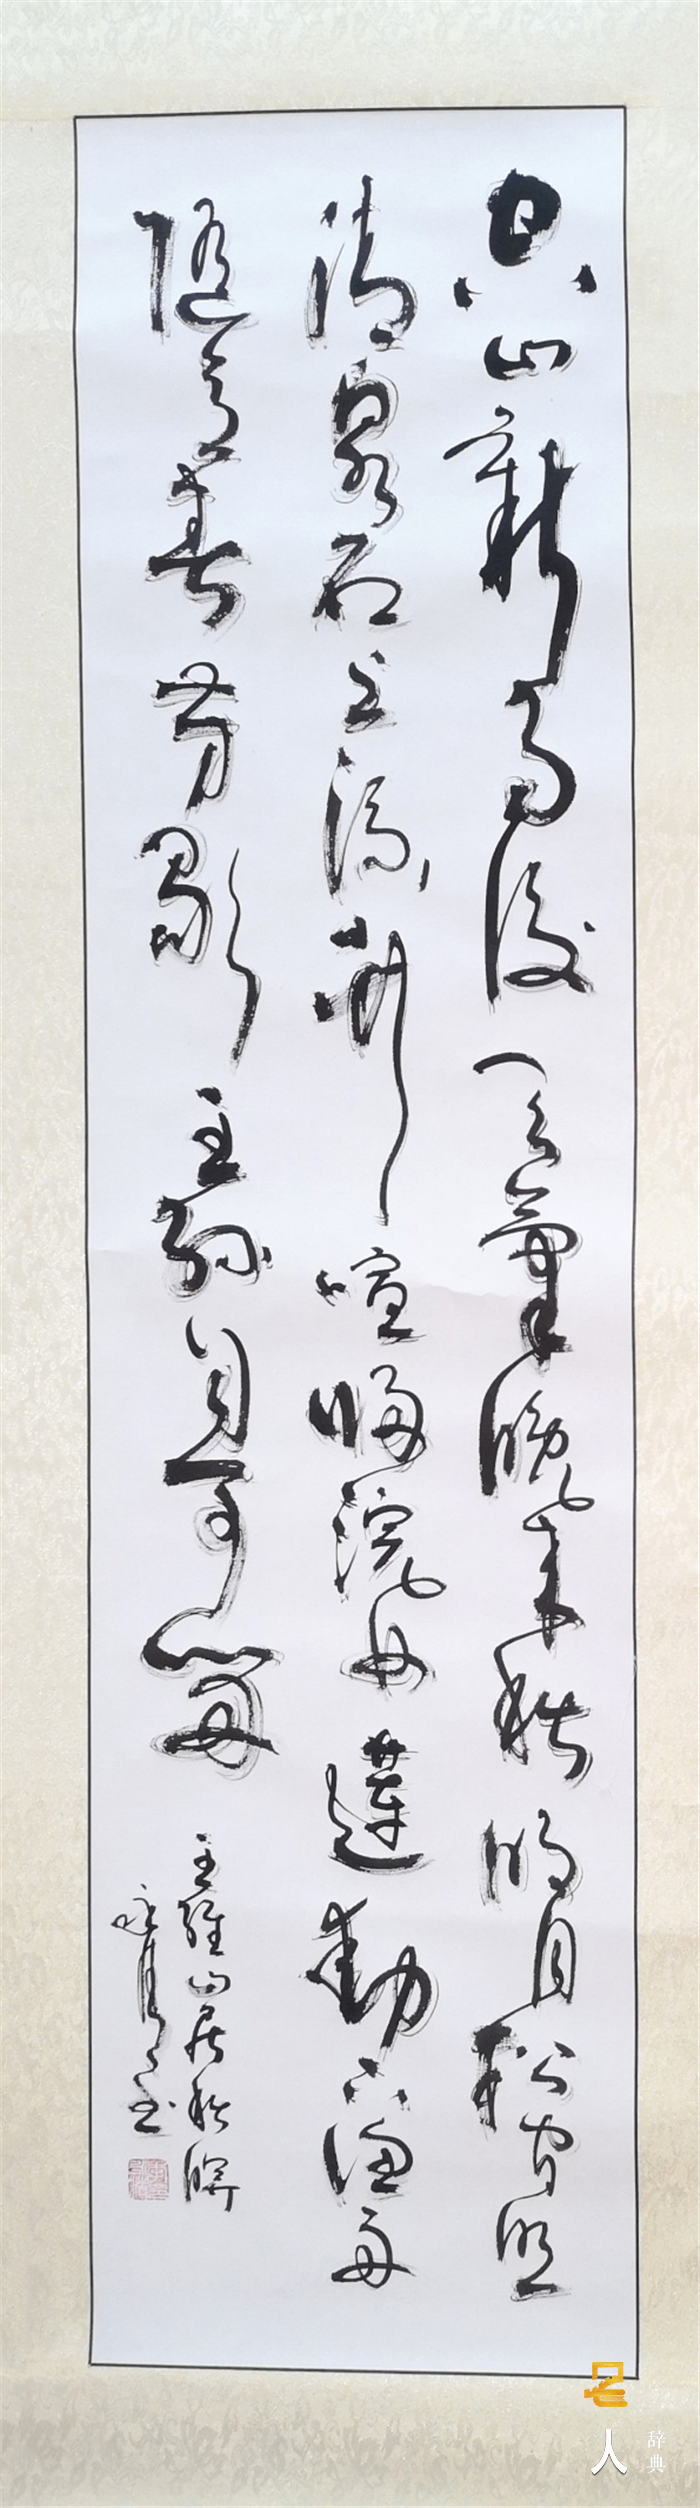 空山新雨后天气晚来秋明月松间照
清泉石上流竹喧归浣女莲动下渔舟
随意春芳歇王孙自可留
王维山居秋暝
人
辞典